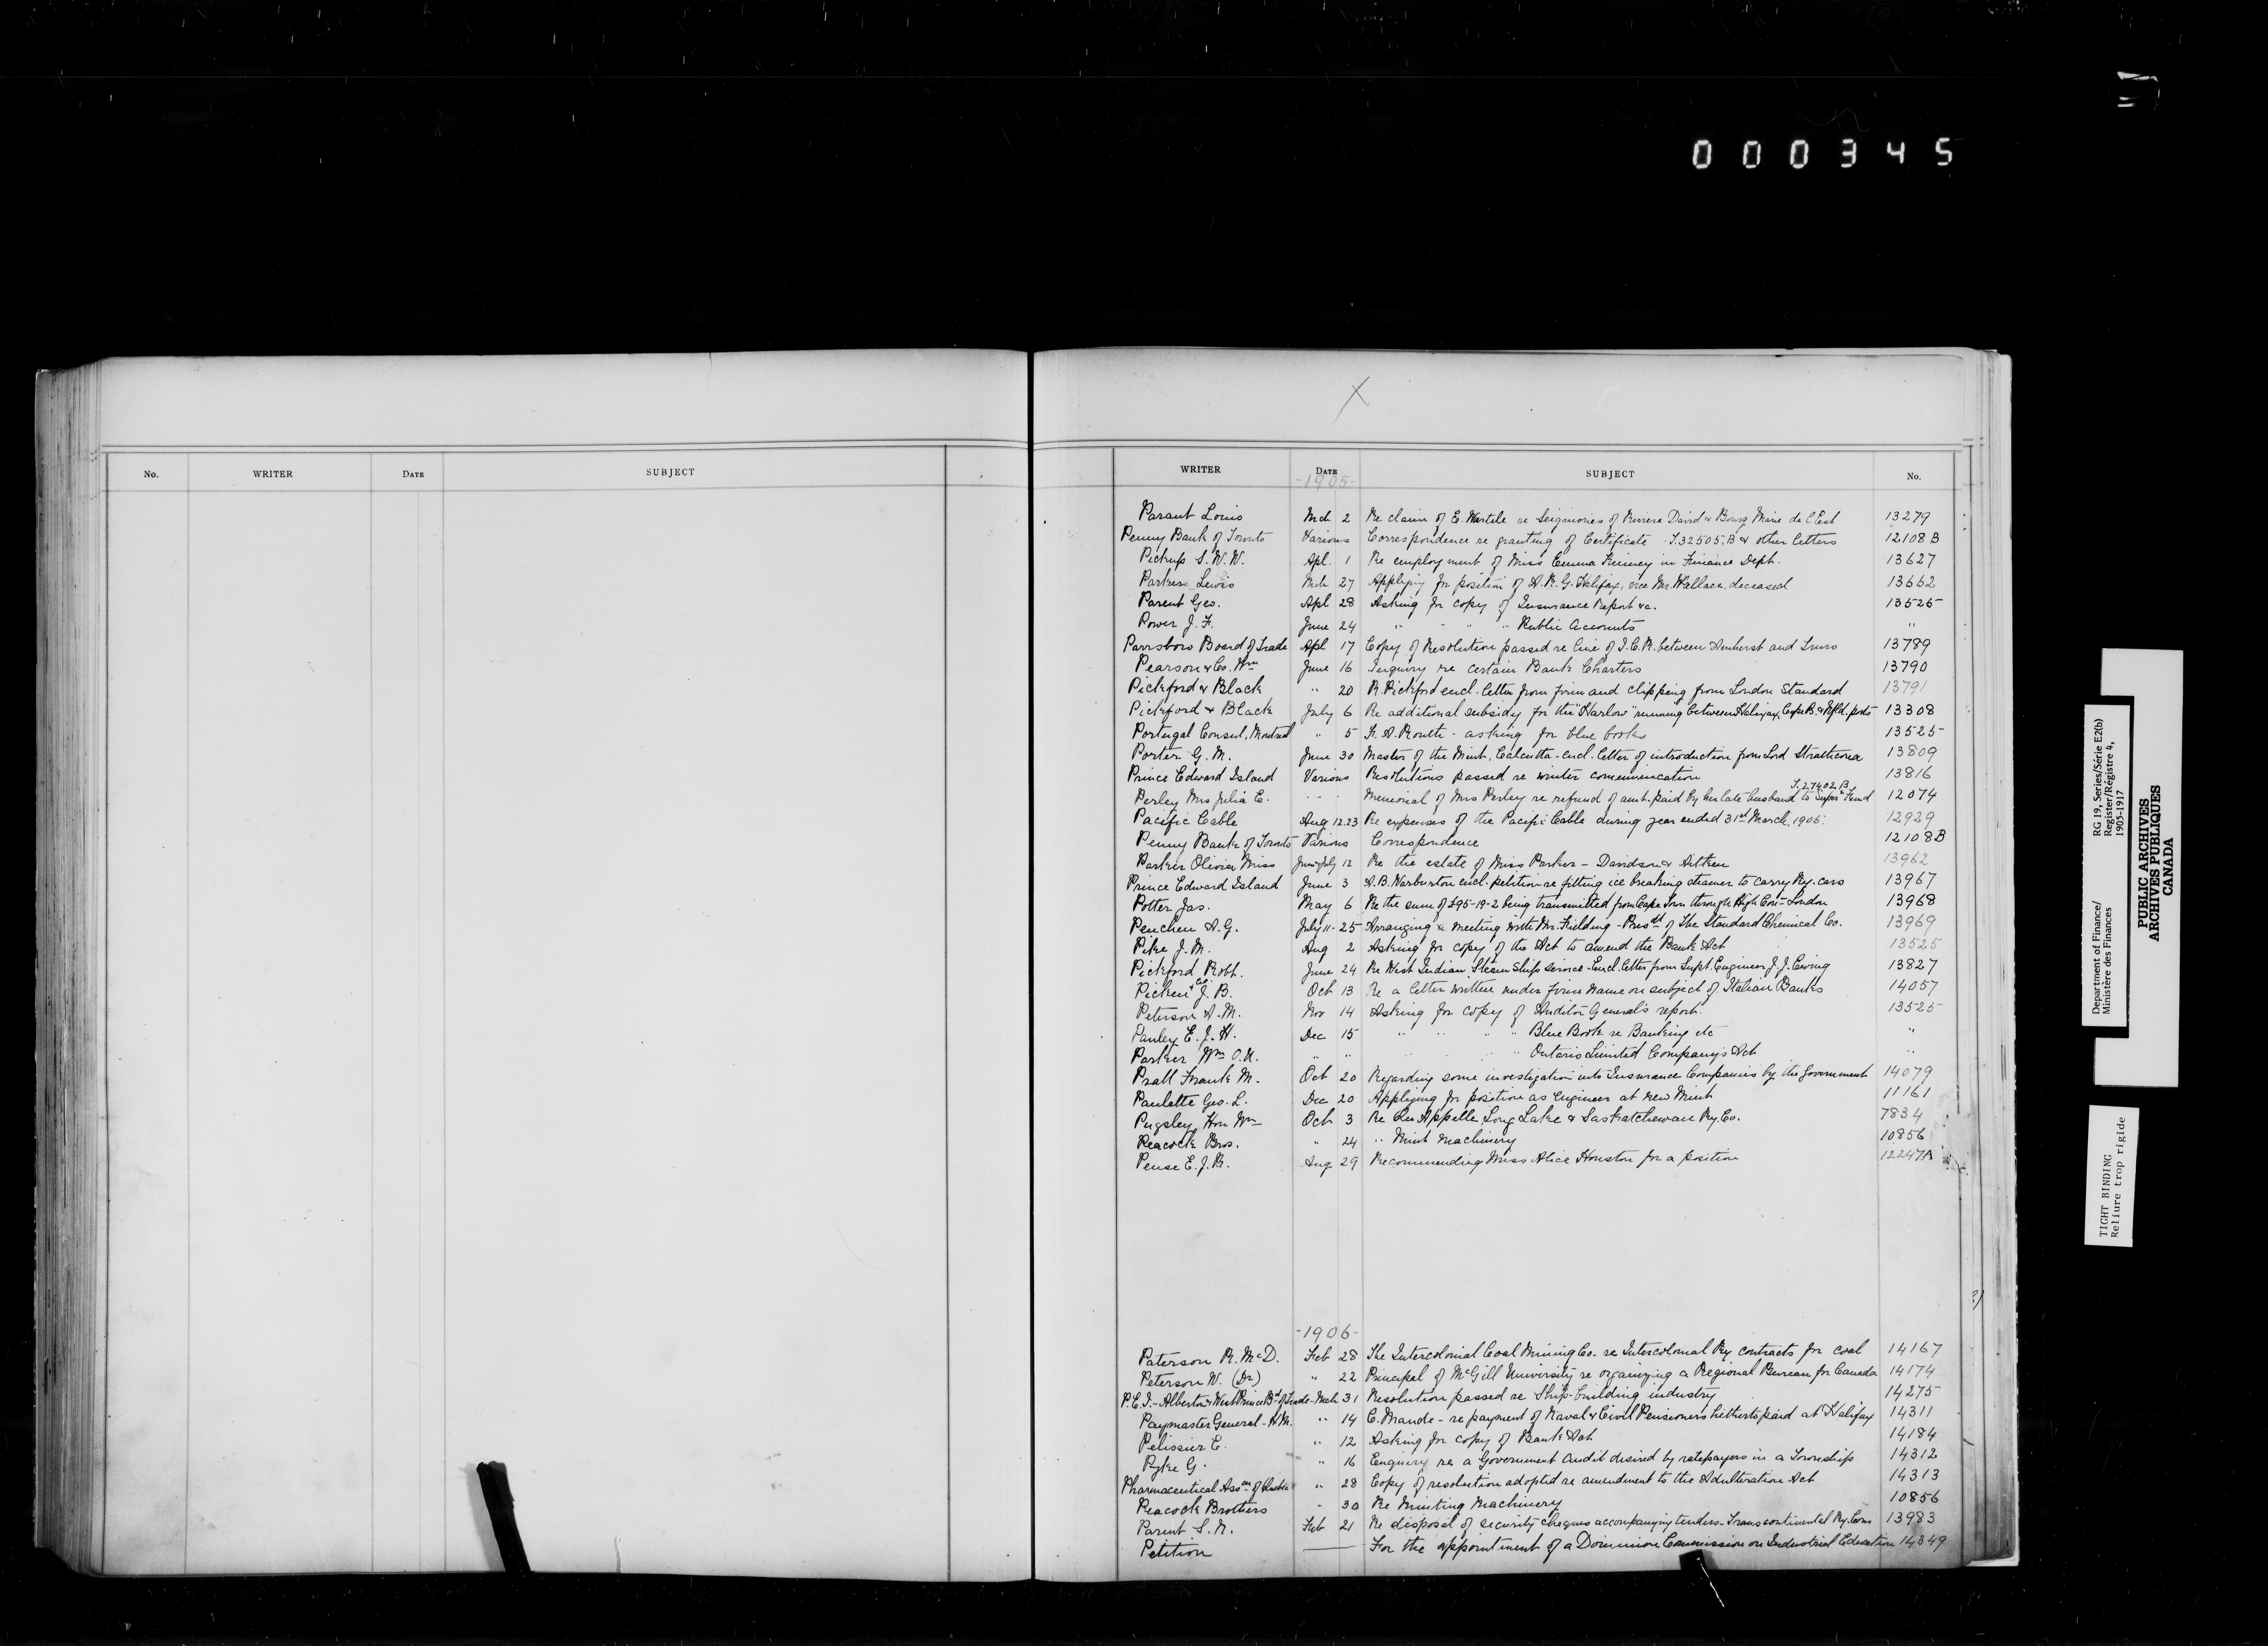 000345
No. WRITER DATE SUBJECT
WRITER DATE SUBJECT No.
-1905-
Parant Louis Mch 2 Re claim of E. Wurtele re Seigniories of Riviere David & Bourg Marie de l'Est 13279
Penny Bank of Toronto Various Correspondence re granting of Certificate J.32505.B & other letters 12108 B
Pickup S. W. W. Apl. 1 Re employment of Miss Emma Kinney in Finance Dept. 13627
Parker Lewis Mch 27 Applying for position of A.R.G. Halifax, vice Mr. Wallace, deceased 13662
Parent Geo. Apl 28 Asking for copy of Insurance Report &c. 13525
Power J. F. June 24 " " " " Public Accounts "
Parrsboro Board of Trade Apl 17 Copy of Resolution passed re line of I.C.R. between Amherst and Truro 13789
Pearson & Co. Wm June 16 Inquiry re certain Bank Charters 13790
Pickford & Black " 20 R. Pickford encl. letter from firm and clipping from London Standard 13791
Pickford & Black July 6 Re additional subsidy for the "Harlow" running between Halifax, Cape B. & Nfld. ports 13308
Portugal Consul, Montreal " 5 F. A. Routh - asking for blue books 13525
Porter G. M. June 30 Master of the Mint, Calcutta - encl. letter of introduction from Lord Strathcona 13809
Prince Edward Island Various Resolutions passed re winter communication 13816
J.27402 B.
Perley Mrs Julia E. - - - Memorial of Mrs Perley re refund of amt. paid by her late husband to Supern Fund 12074
Pacific Cable Aug 12.23 Re expenses of the Pacific Cable during year ended 31st March, 1905. 12929
Penny Bank of Toronto Various Correspondence 12108B
Parker Olivia Miss June & July 12 Re the estate of Miss Parker - Davidson & Aitken 13962
Prince Edward Island June 3 A. B. Warburton encl. petition re fitting ice breaking steamer to carry Ry. cars 13967
Potter Jas. May 6 Re the sum of £95-19-2 being transmitted from Cape Town through High Comr London 13968
Peuchen A. G. July 11 - 25 Arranging a meeting with Mr. Fielding - Presdt of The Standard Chemical Co. 13969
Pike J. M. Aug 2 Asking for copy of the Act to amend the Bank Act 13525
Pickford Robt. June 24 Re West Indian Steam Ship Service - Encl. letter from Supt. Engineer J. J. Ewing 13827
Picken & Co. J. B. Oct 13 Re a letter written under firm name on subject of Italian Banks 14057
Peterson A. M. Nov 14 Asking for copy of Auditor General's report. 13525
Pauley E. J. H. Dec 15 " " " " Blue Book re Banking etc "
Parker Wm O. K. " " " " Ontario Limited Company's Act "
Pratt Frank M. Oct 20 Regarding some investigation into Insurance Companies by the Government 14079
Paulette Geo. L. Dec 20 Applying for position as Engineer at New Mint 11161
Pugsley, Hon Wm Oct 3 Re Qu'Appelle, Long Lake & Saskatchewan Ry. Co. 7834
Peacock Bros. " 24 " Mint Machinery 10856
Pense E. J. B. Aug 29 Recommending Miss Alice Houston for a position 12247A
-1906-
Paterson R. McD. Feb 28 The Intercolonial Coal Mining Co. re Intercolonial Ry contracts for coal 14167
Peterson W. (Dr) " 22 Principal of McGill University re organizing a Regional Bureau for Canada 14174
P.E.I. - Alberton & West Prince Bd of Trade - Mch 31 Resolution passed re Ship-building industry 14275
Paymaster General - H.M. " 14 C. Maude - re payment of Naval & Civil Pensioners hitherto paid at Halifax 14311
Pelissier E. " 12 Asking for copy of Bank Act 14184
Pyke G. " 16 Enquiry re a Government Audit desired by ratepayers in a Township 14312
Pharmaceutical Assn of Quebec " 28 Copy of resolution adopted re amendment to the Adulteration Act 14313
Peacock Brothers " 30 Re Minting Machinery 10856
Parent S. N. Feb 21 Re disposal of security cheques accompanying tenders - Transcontinental Ry. Com 13983
Petition —— For the appointment of a Dominion Commission on Industrial Education 14349
Department of Finance/
Ministère des Finances
RG 19, Series/Série E2(b)
Register/Régistre 4,
1905-1917
PUBLIC ARCHIVES
ARCHIVES PUBLIQUES
CANADA
TIGHT BINDING
Reliure trop rigide